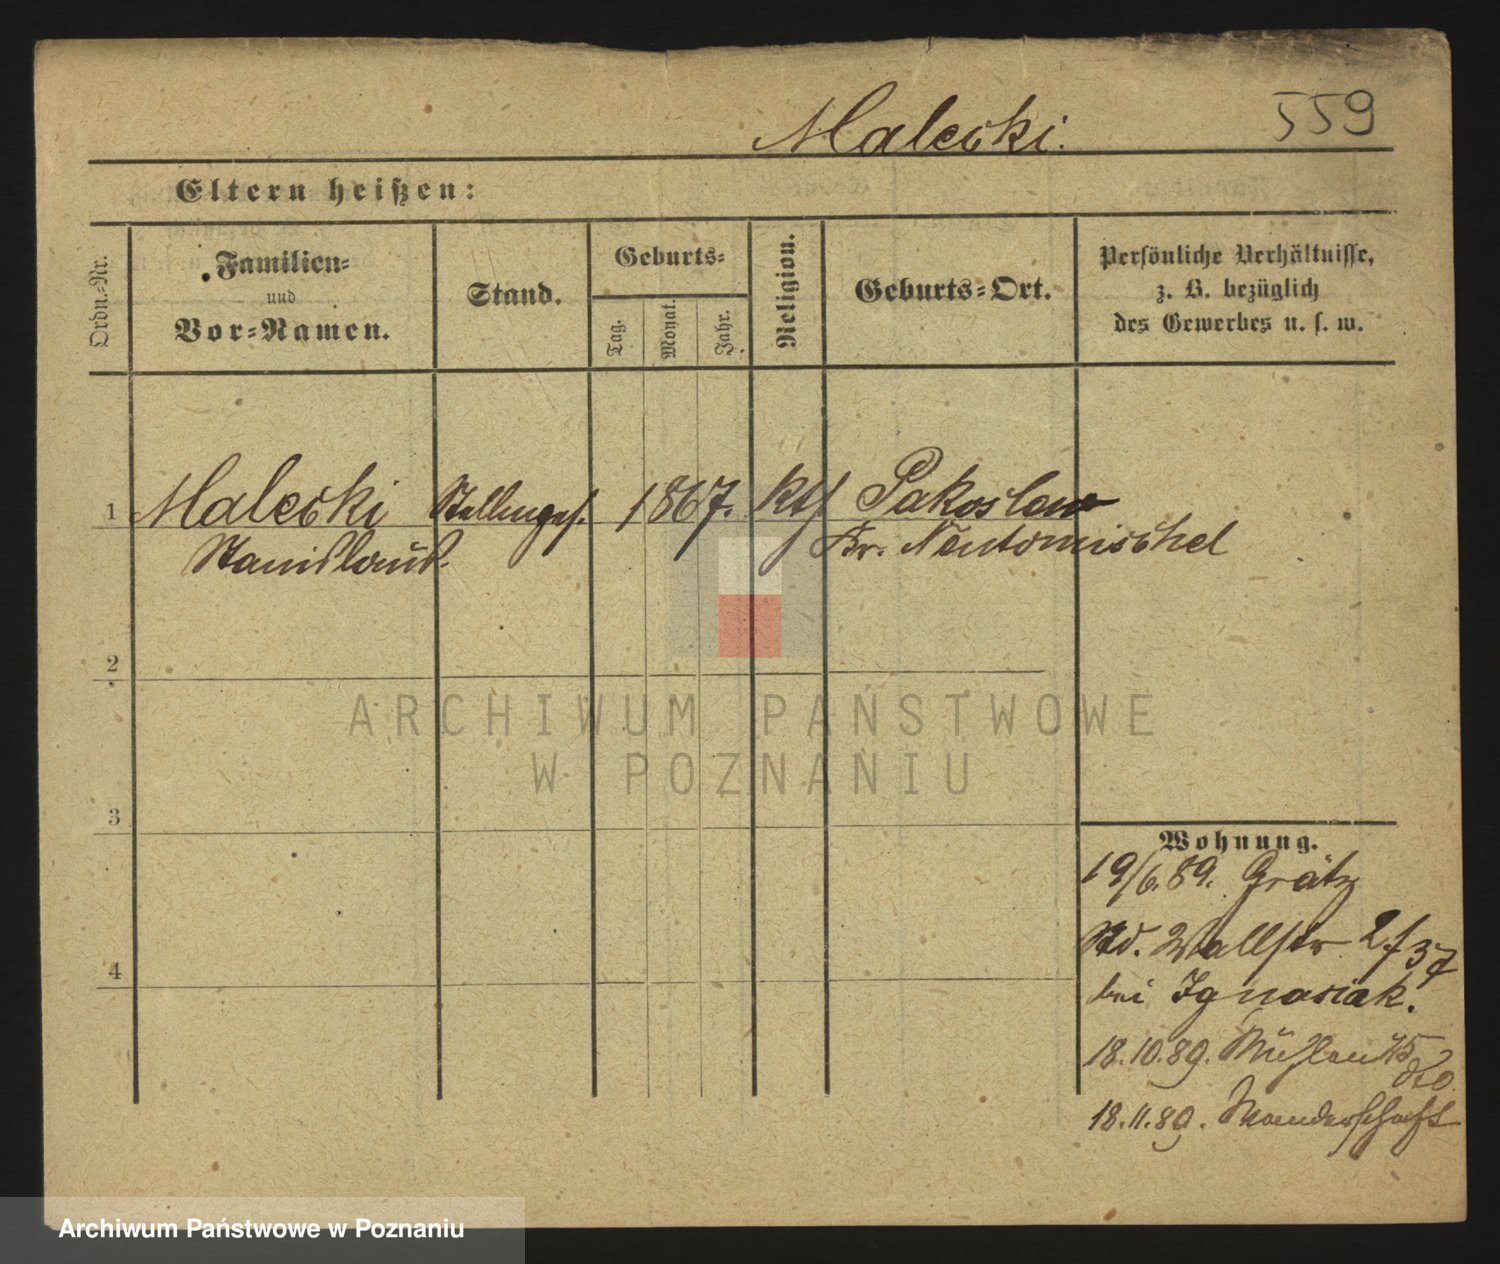 559
Malecki.
Eltern heißen:
Ordn.-Nr.
Familien-
und
Vor-Namen.
Stand.
Geburts-
Tag.
Monat.
Jahr.
Religion.
Geburts-Ort.
Persönliche Verhältnisse,
z. B. bezüglich
des Gewerbes u. s. w.
1 Malecki Stellmges. 1867. kth Pakoslaw
Stanislaus. Kr. Neutomischel
2
3
4
ARCHIWUM PAŃSTWOWE
W POZNANIU
Wohnung.
19/6.89. Grätz
Wallstr
bei Ignasiak.
18.10.89. Mühlen
18.11.89. Wanderschaft
Archiwum Państwowe w Poznaniu